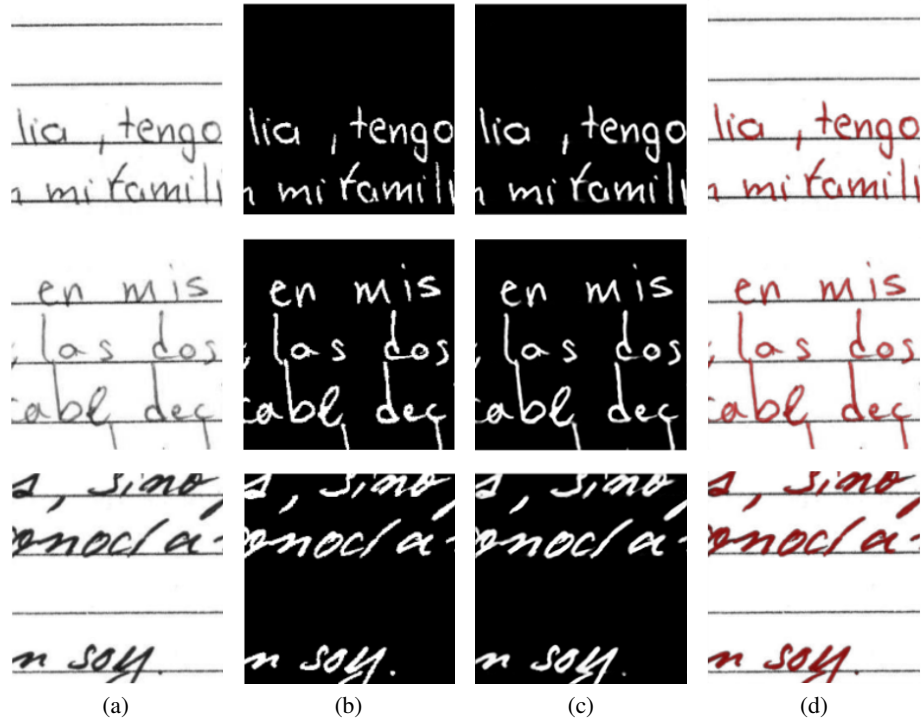 lia , tengo
n mi famili
lia , tengo
n mi famili
lia , tengo
n mi famili
lia , tengo
n mi famili
en mis
las dos
cabl dec
en mis
las dos
cabl dec
en mis
las dos
cabl dec
en mis
las dos
cabl dec
s, sino
onocía-
n soy.
s, sino
onocía-
n soy.
s, sino
onocía-
n soy.
s, sino
onocía-
n soy.
(a) (b) (c) (d)